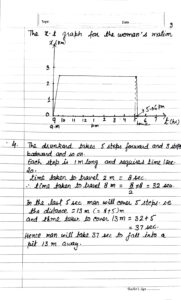 Topic
Date
3
The x-t graph for the woman's motion
x (km)
2.5
0
9
10
11
12
1
2
3
4
5
6
t (hr)
4. The drunkard takes 5 steps forward and 3 steps
backward and so on
Each step is 1m long and requires time 1sec
So,
time taken to travel 2 m = 8 sec
∴ time taken to travel 8 m = 8/2 × 8 = 32 sec
In the last 5 sec man will cover 5 steps ie
the distance = 13 m (= 8+5) m
and time taken to cover 13 m = 32 + 5
= 37 sec
Hence man will take 37 sec to fall into a
pit 13 m away.
Teacher's Sign